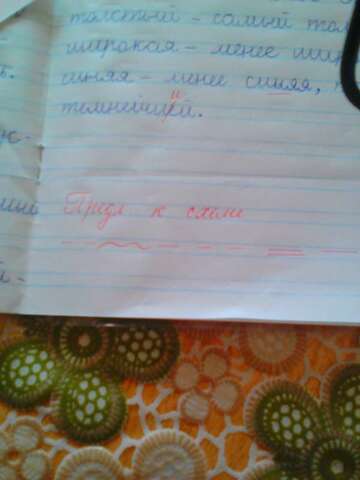 толстый - самый тол
широкая - менее шир
синяя - менее синяя,
темнейший.
Предл к схеме